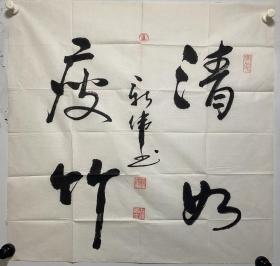 清如
瘦竹
新伟书